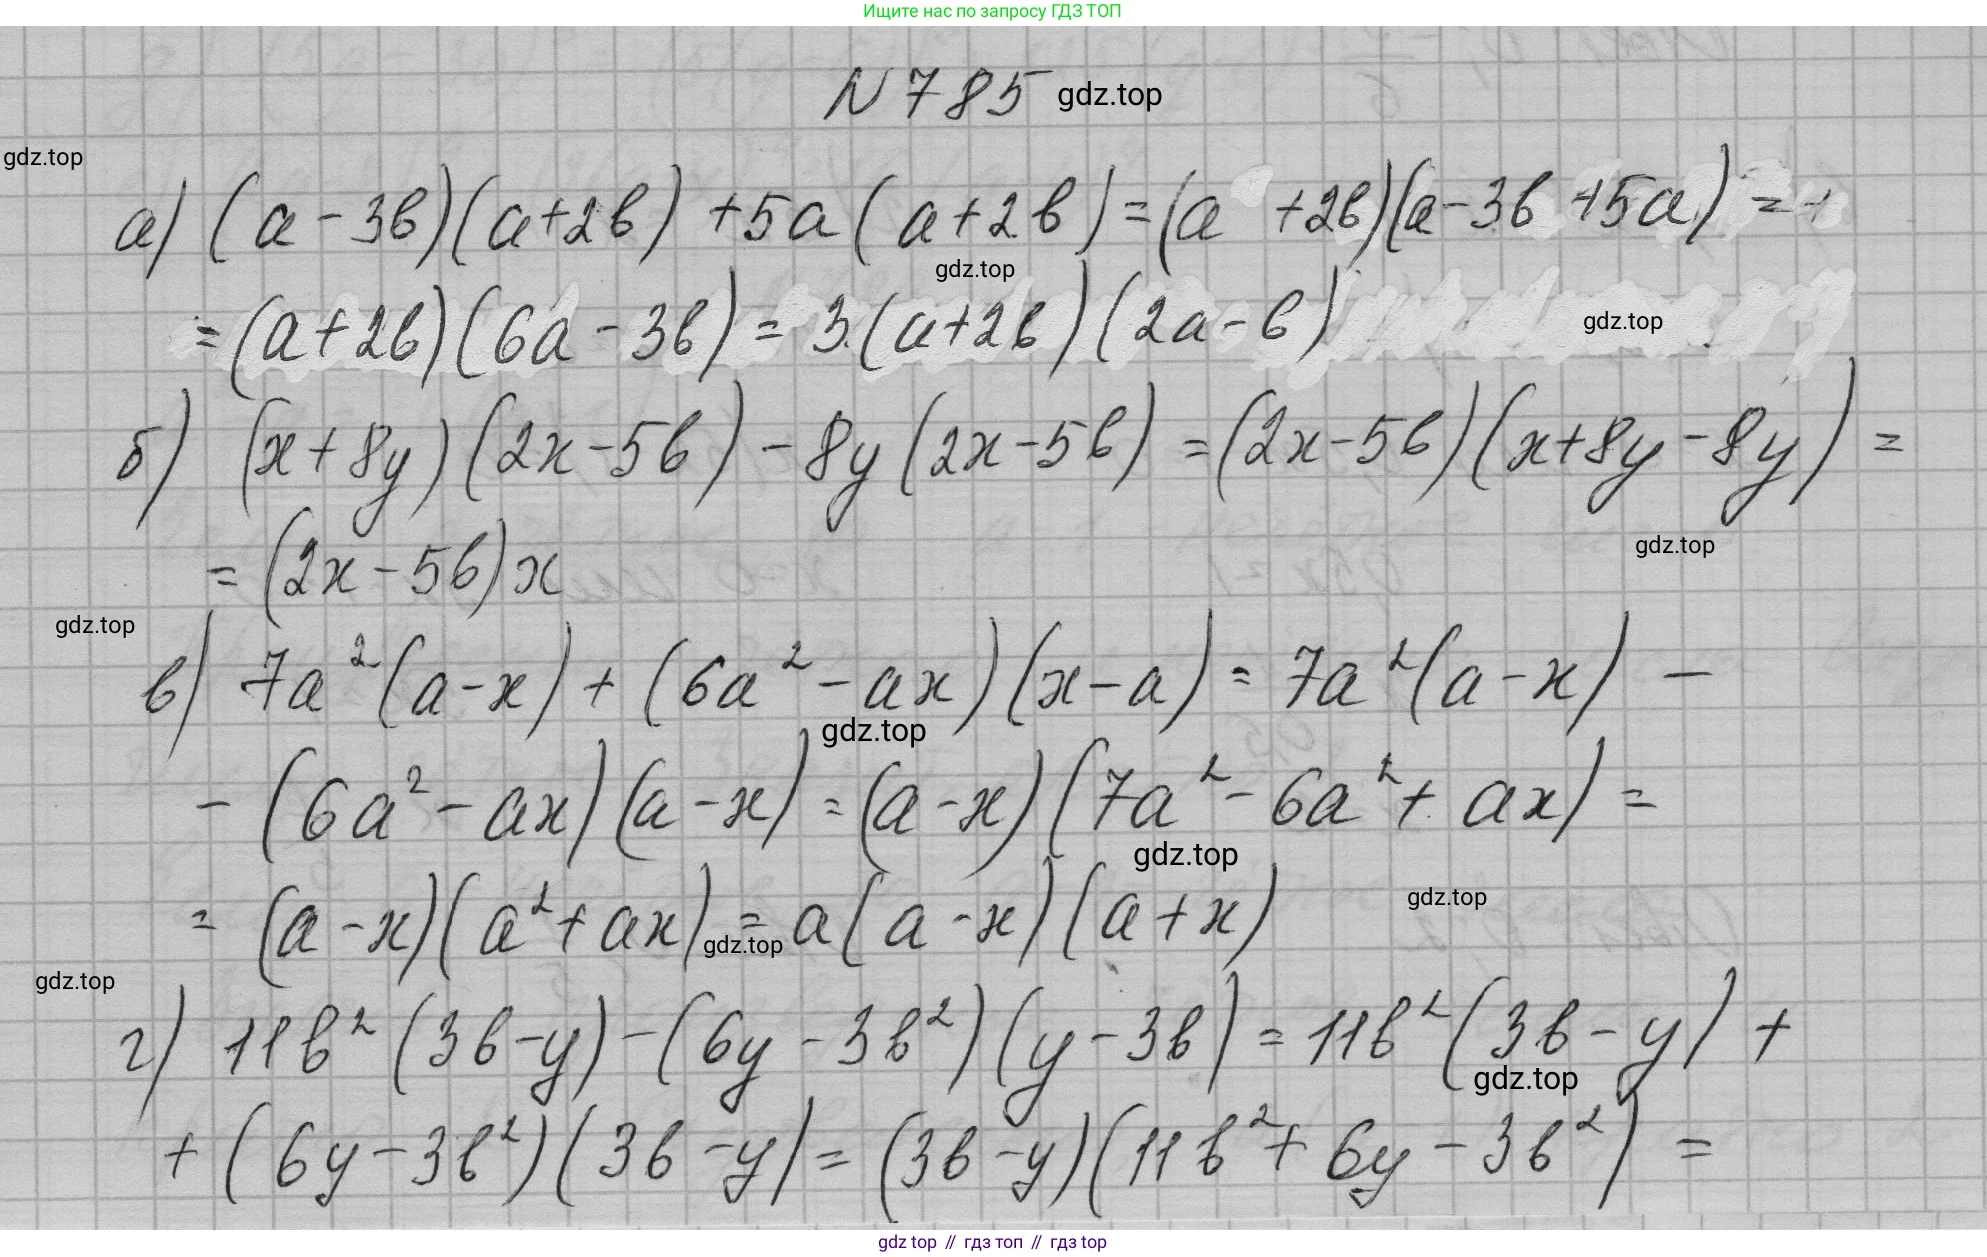 Ищите нас по запросу ГДЗ ТОП
N 785 gdz.top
gdz.top
а) (a - 3b)(a + 2b) + 5a(a + 2b) = (a + 2b)(a - 3b + 5a) =
gdz.top
= (a + 2b)(6a - 3b) = 3(a + 2b)(2a - b)
gdz.top
б) (x + 8y)(2x - 5b) - 8y(2x - 5b) = (2x - 5b)(x + 8y - 8y) =
gdz.top
= (2x - 5b)x
gdz.top
в) 7a²(a - x) + (6a² - ax)(x - a) = 7a²(a - x) -
gdz.top
- (6a² - ax)(a - x) = (a - x)(7a² - 6a² + ax) =
gdz.top
gdz.top
= (a - x)(a² + ax) = a(a - x)(a + x)
gdz.top
gdz.top
г) 11b²(3b - y) - (6y - 3b²)(y - 3b) = 11b²(3b - y) +
gdz.top
+ (6y - 3b²)(3b - y) = (3b - y)(11b² + 6y - 3b²) =
gdz top // гдз топ // gdz top